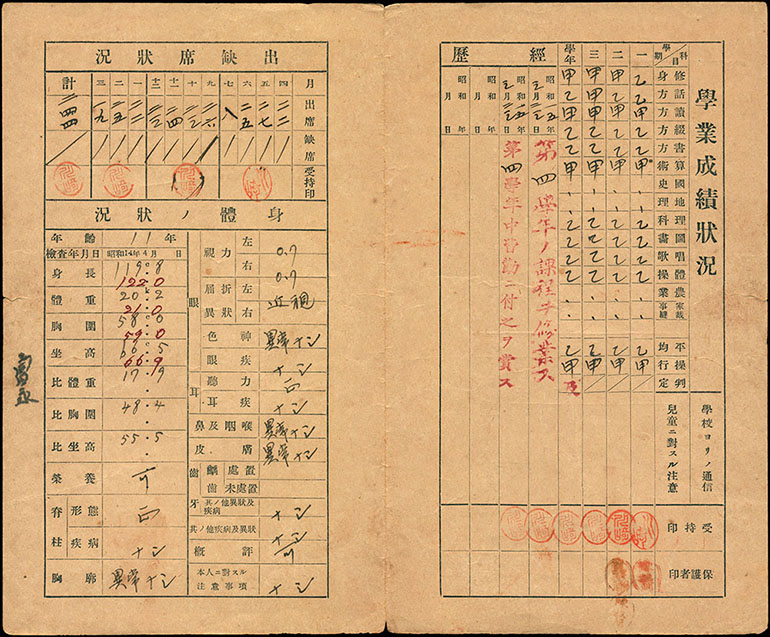 學業成績狀況
科目 修身 話方 讀方 綴方 書方 算術 國史 地理 理科 圖畫 唱歌 體操 農業 家事裁縫 平均 操行 判定
學期
一 乙 乙 甲 乙 乙 甲 乙 乙 乙 乙 甲
二 甲 乙 甲 乙 乙 甲 乙 乙 乙 乙 甲
三 甲 乙 甲 乙 乙 甲 乙 乙 乙 乙 甲
學年 甲 乙 甲 乙 乙 甲 乙 乙 乙 乙 甲 及
學校ヨリノ通信
兒童ニ對スル注意
受持印
保護者印
經歷
昭和 年 月 日
第四學年ノ課程ヲ修業ス
昭和 年 月 日
第四學年中皆勤ニ付之ヲ賞ス
昭和 年 月 日
昭和 年 月 日
出缺席狀況
月 四 五 六 七 九 十 十一 十二 一 二 三 計
出席 二二 二七 二五 八 二六 二四 一九 二四四
缺席
受持印
身體ノ狀況
年齡 11年
檢查年月日 昭和14年4月 日
身長 119.8
122.0
體重 20.2
胸圍 58.0
59.0
坐高 66.5
66.9
比體重 17.9
比胸圍 48.4
比坐高 55.5
榮養 可
脊柱 形態 正
疾病 ナシ
胸廓 異常ナシ
眼 視力 左 0.7
右 0.7
屈折異狀 左 右 近視
色神 異常ナシ
眼疾 ナシ
耳 聽力 正
耳疾 ナシ
鼻及咽喉 異常ナシ
皮膚 異常ナシ
齒牙 齲齒 處置
未處置
其ノ他異狀及疾病 ナシ
其ノ他疾病及異狀 ナシ
概評 可
本人ニ對スル注意事項 ナシ